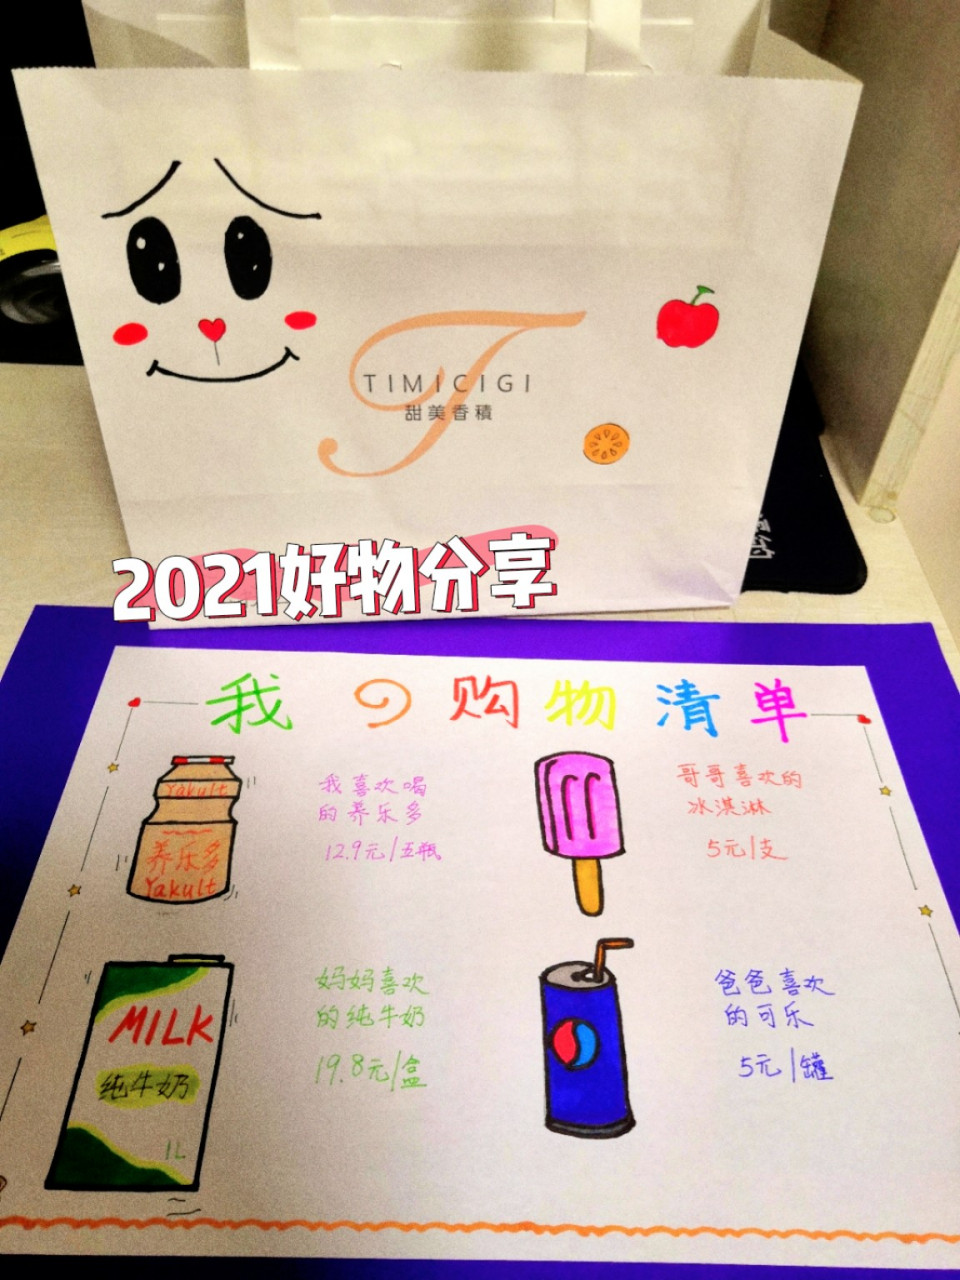 TIMICIGI
甜美香積
2021好物分享
我の购物清单
Yakult
养乐多
Yakult
我喜欢喝
的养乐多
12.9元/五瓶
哥哥喜欢的
冰淇淋
5元/支
MILK
纯牛奶
1L
妈妈喜欢
的纯牛奶
19.8元/盒
爸爸喜欢
的可乐
5元/罐